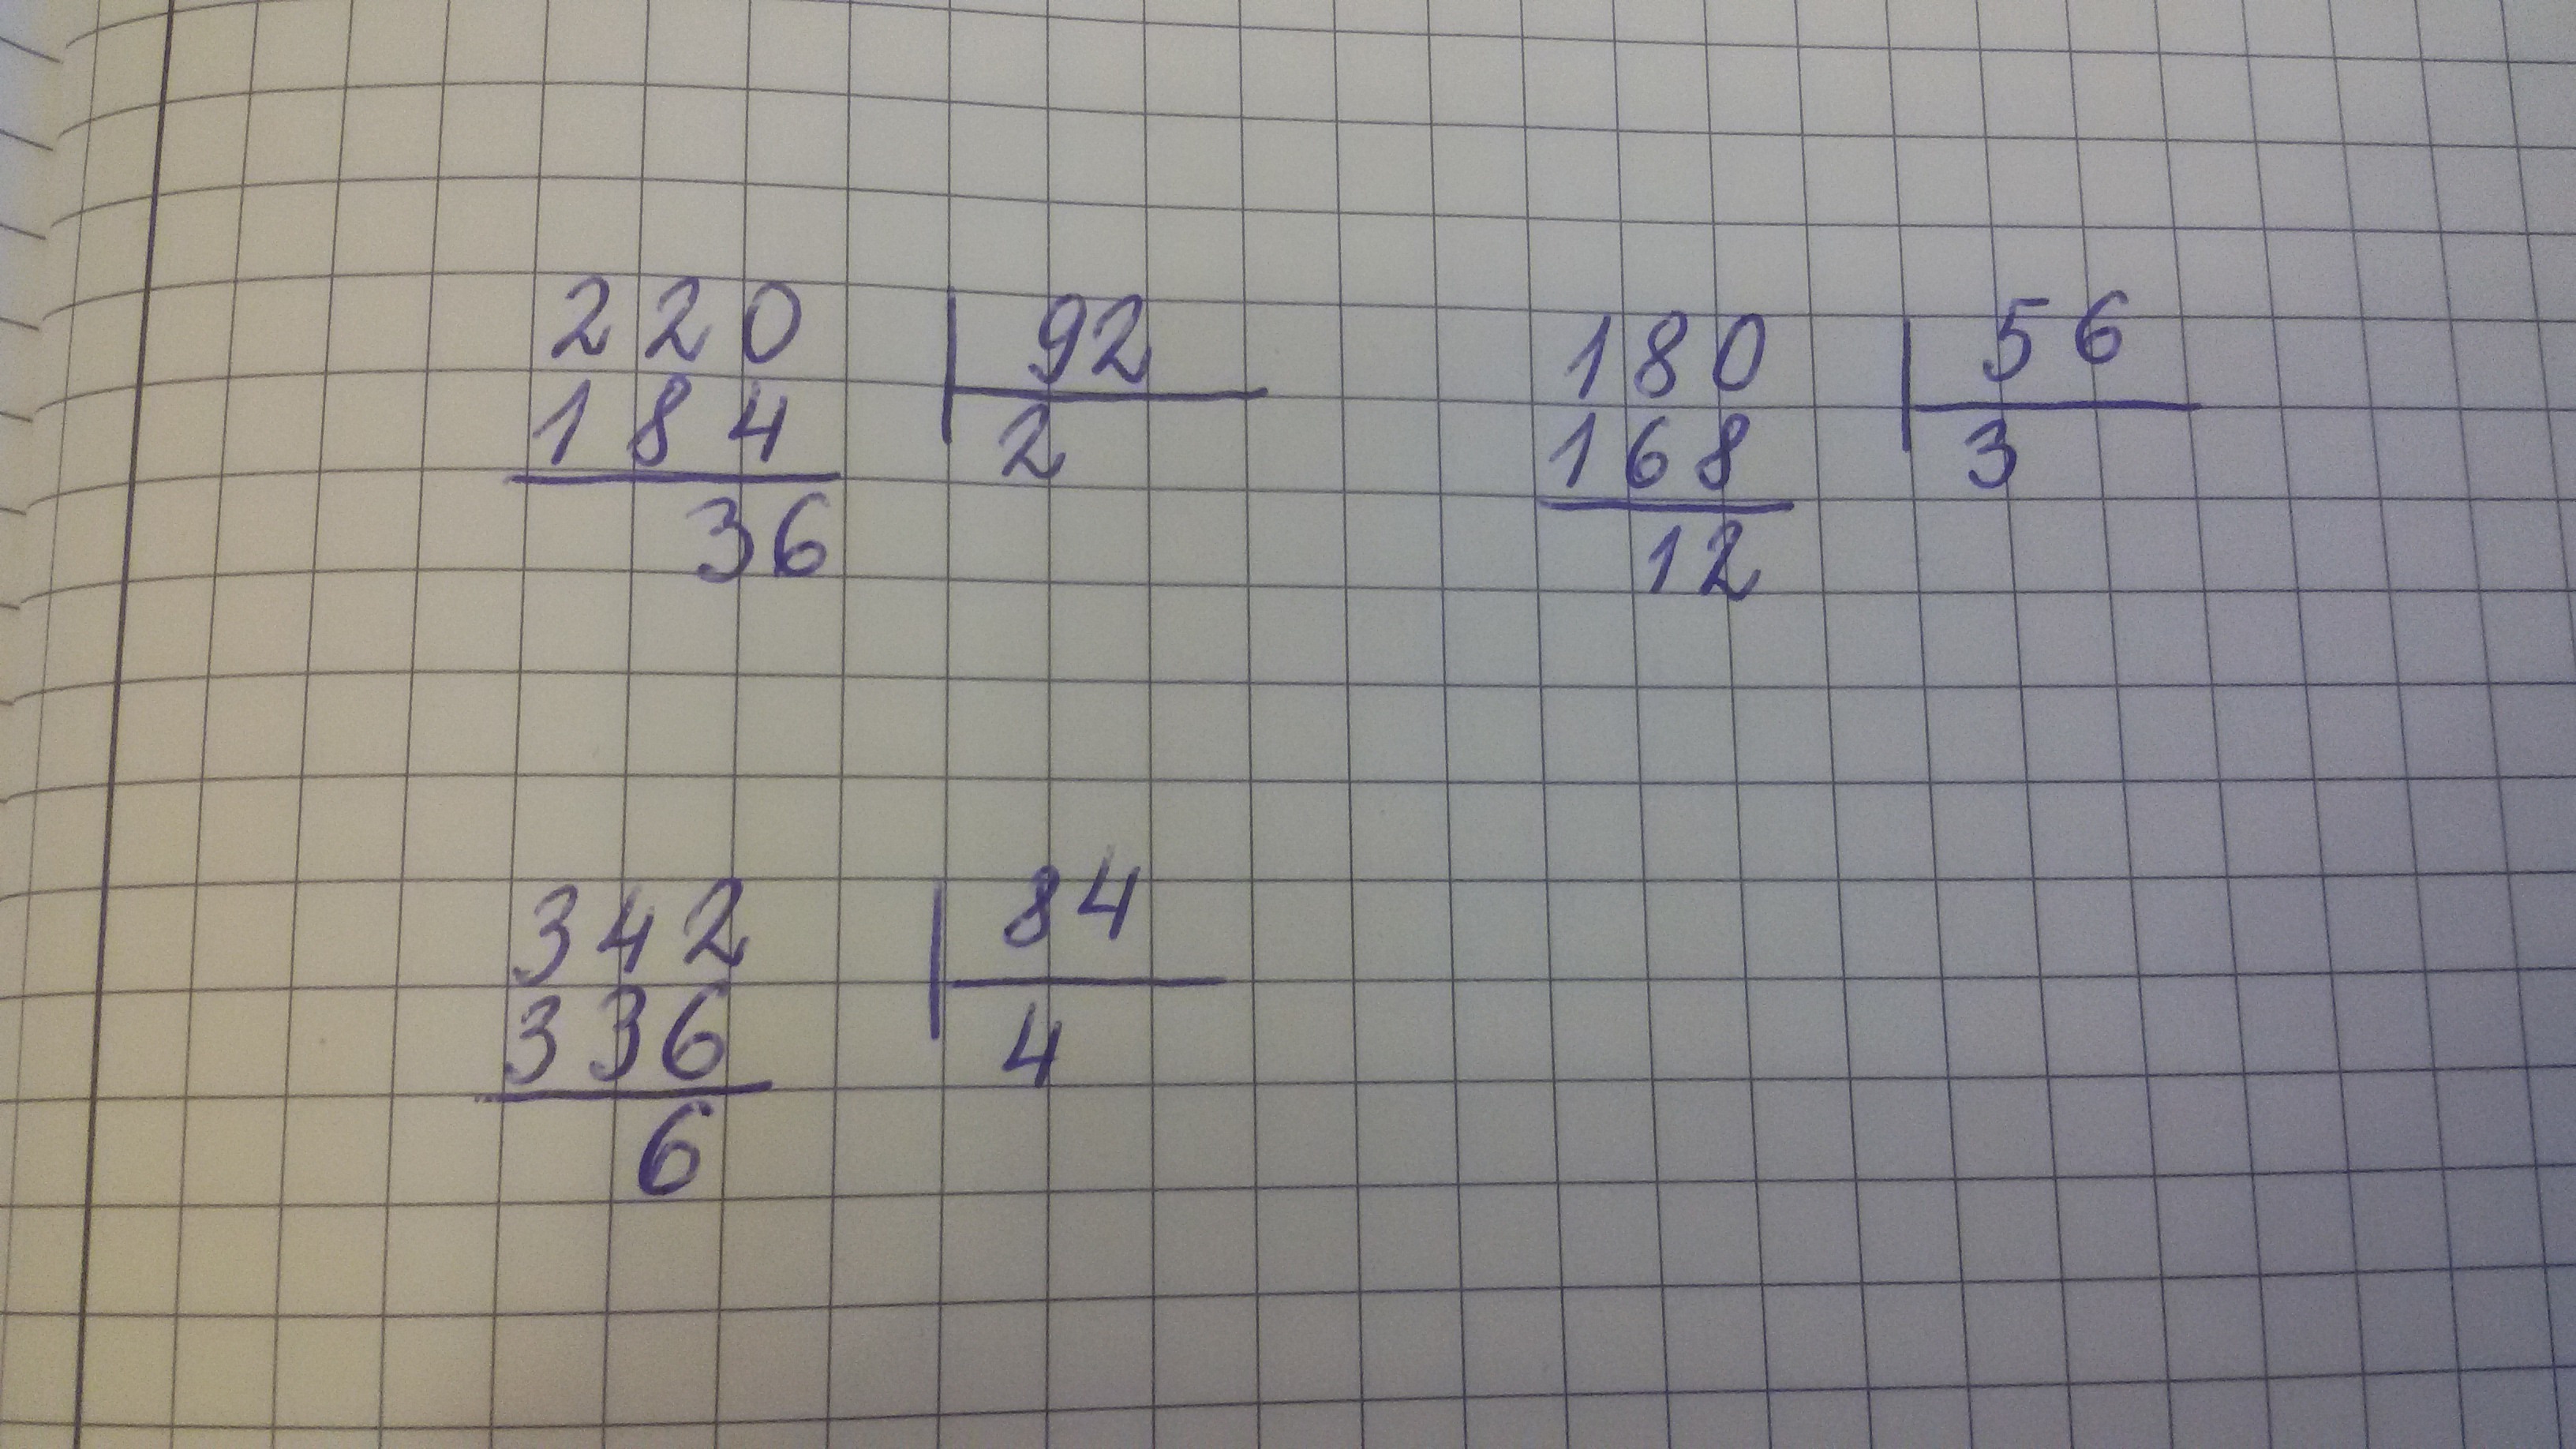 220 92
184 2
36
180 56
168 3
12
342 84
336 4
6